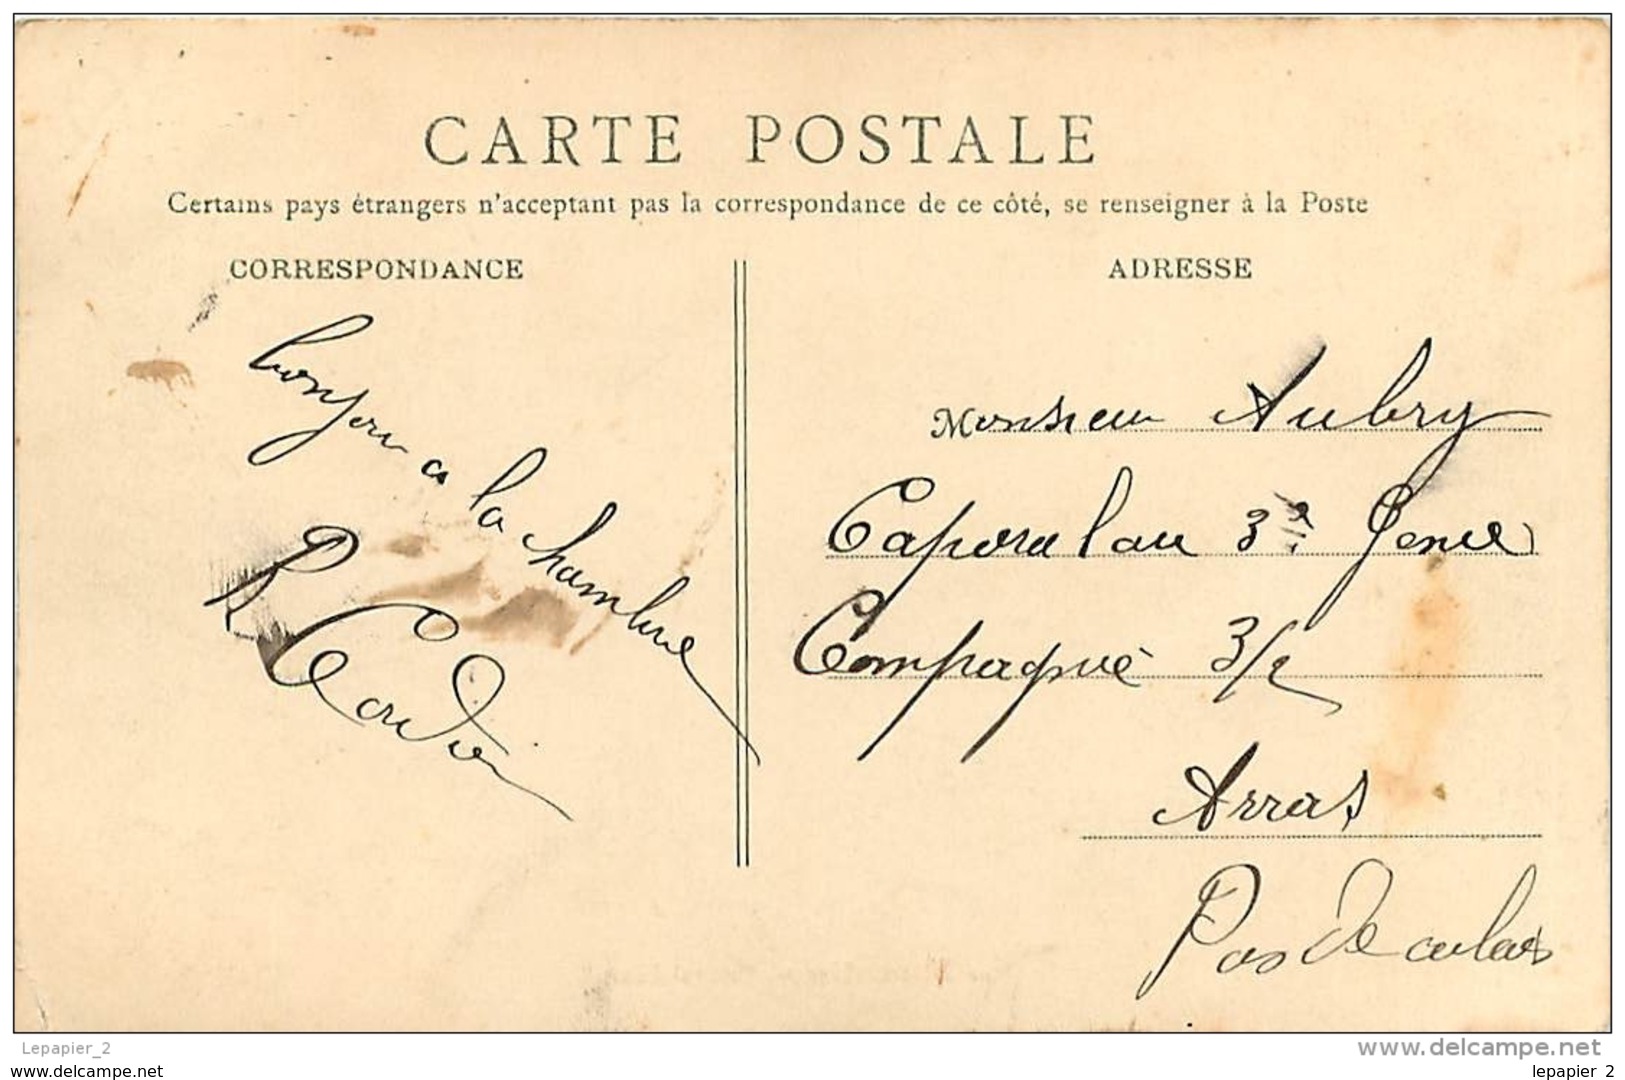 CARTE POSTALE
Certains pays étrangers n'acceptant pas la correspondance de ce côté, se renseigner à la Poste
CORRESPONDANCE
bonjour a la chambre
ADRESSE
Monsieur Aubry
Caporal au 3e Genie
Compagnie 3/2
Arras
Pas De calais
Lepapier_2
www.delcampe.net
www.delcampe.net
lepapier_2